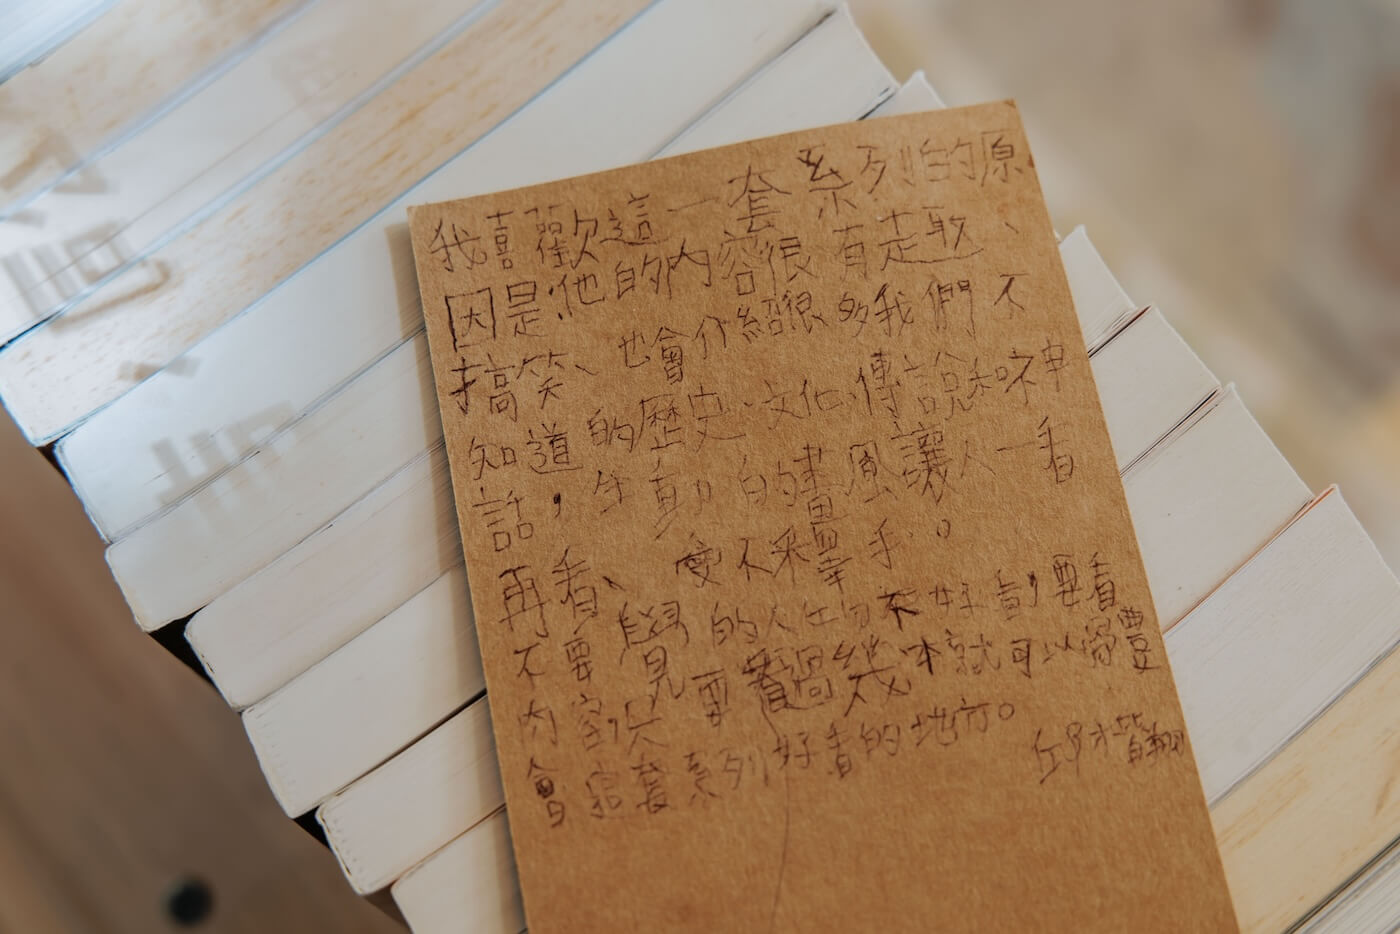 我喜歡這一套系列的原
因是他的內容很有走敢、
搞笑、也會介紹很多我們不
知道的歷史、文化、傳說和神
話，生動的畫風讓人一看
再看、愛不釋手。
不要覺的人物不好看就不要看
內容，只要看過幾本就可以體
會這套系列好看的地方。
邱楷翔